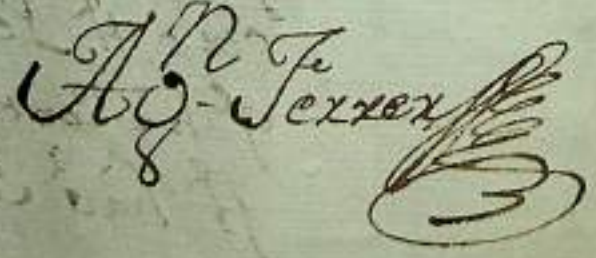 Agⁿ Ferrer